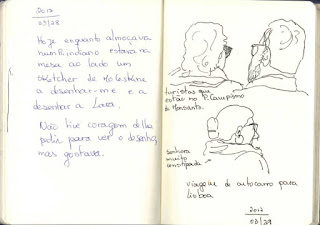 2017
03/28
Hoje enquanto almoçava
num P. indiano estava na
mesa ao lado um
sketcher de Moleskine
a desenhar-me e a
desenhar a Lara.
Não tive coragem de lhe
pedir para ver o desenho,
mas gostava.
turistas que
estão no P. Campismo
de Monsanto.
senhora
muito
constipada
viagem de autocarro para
Lisboa
2017
03/29